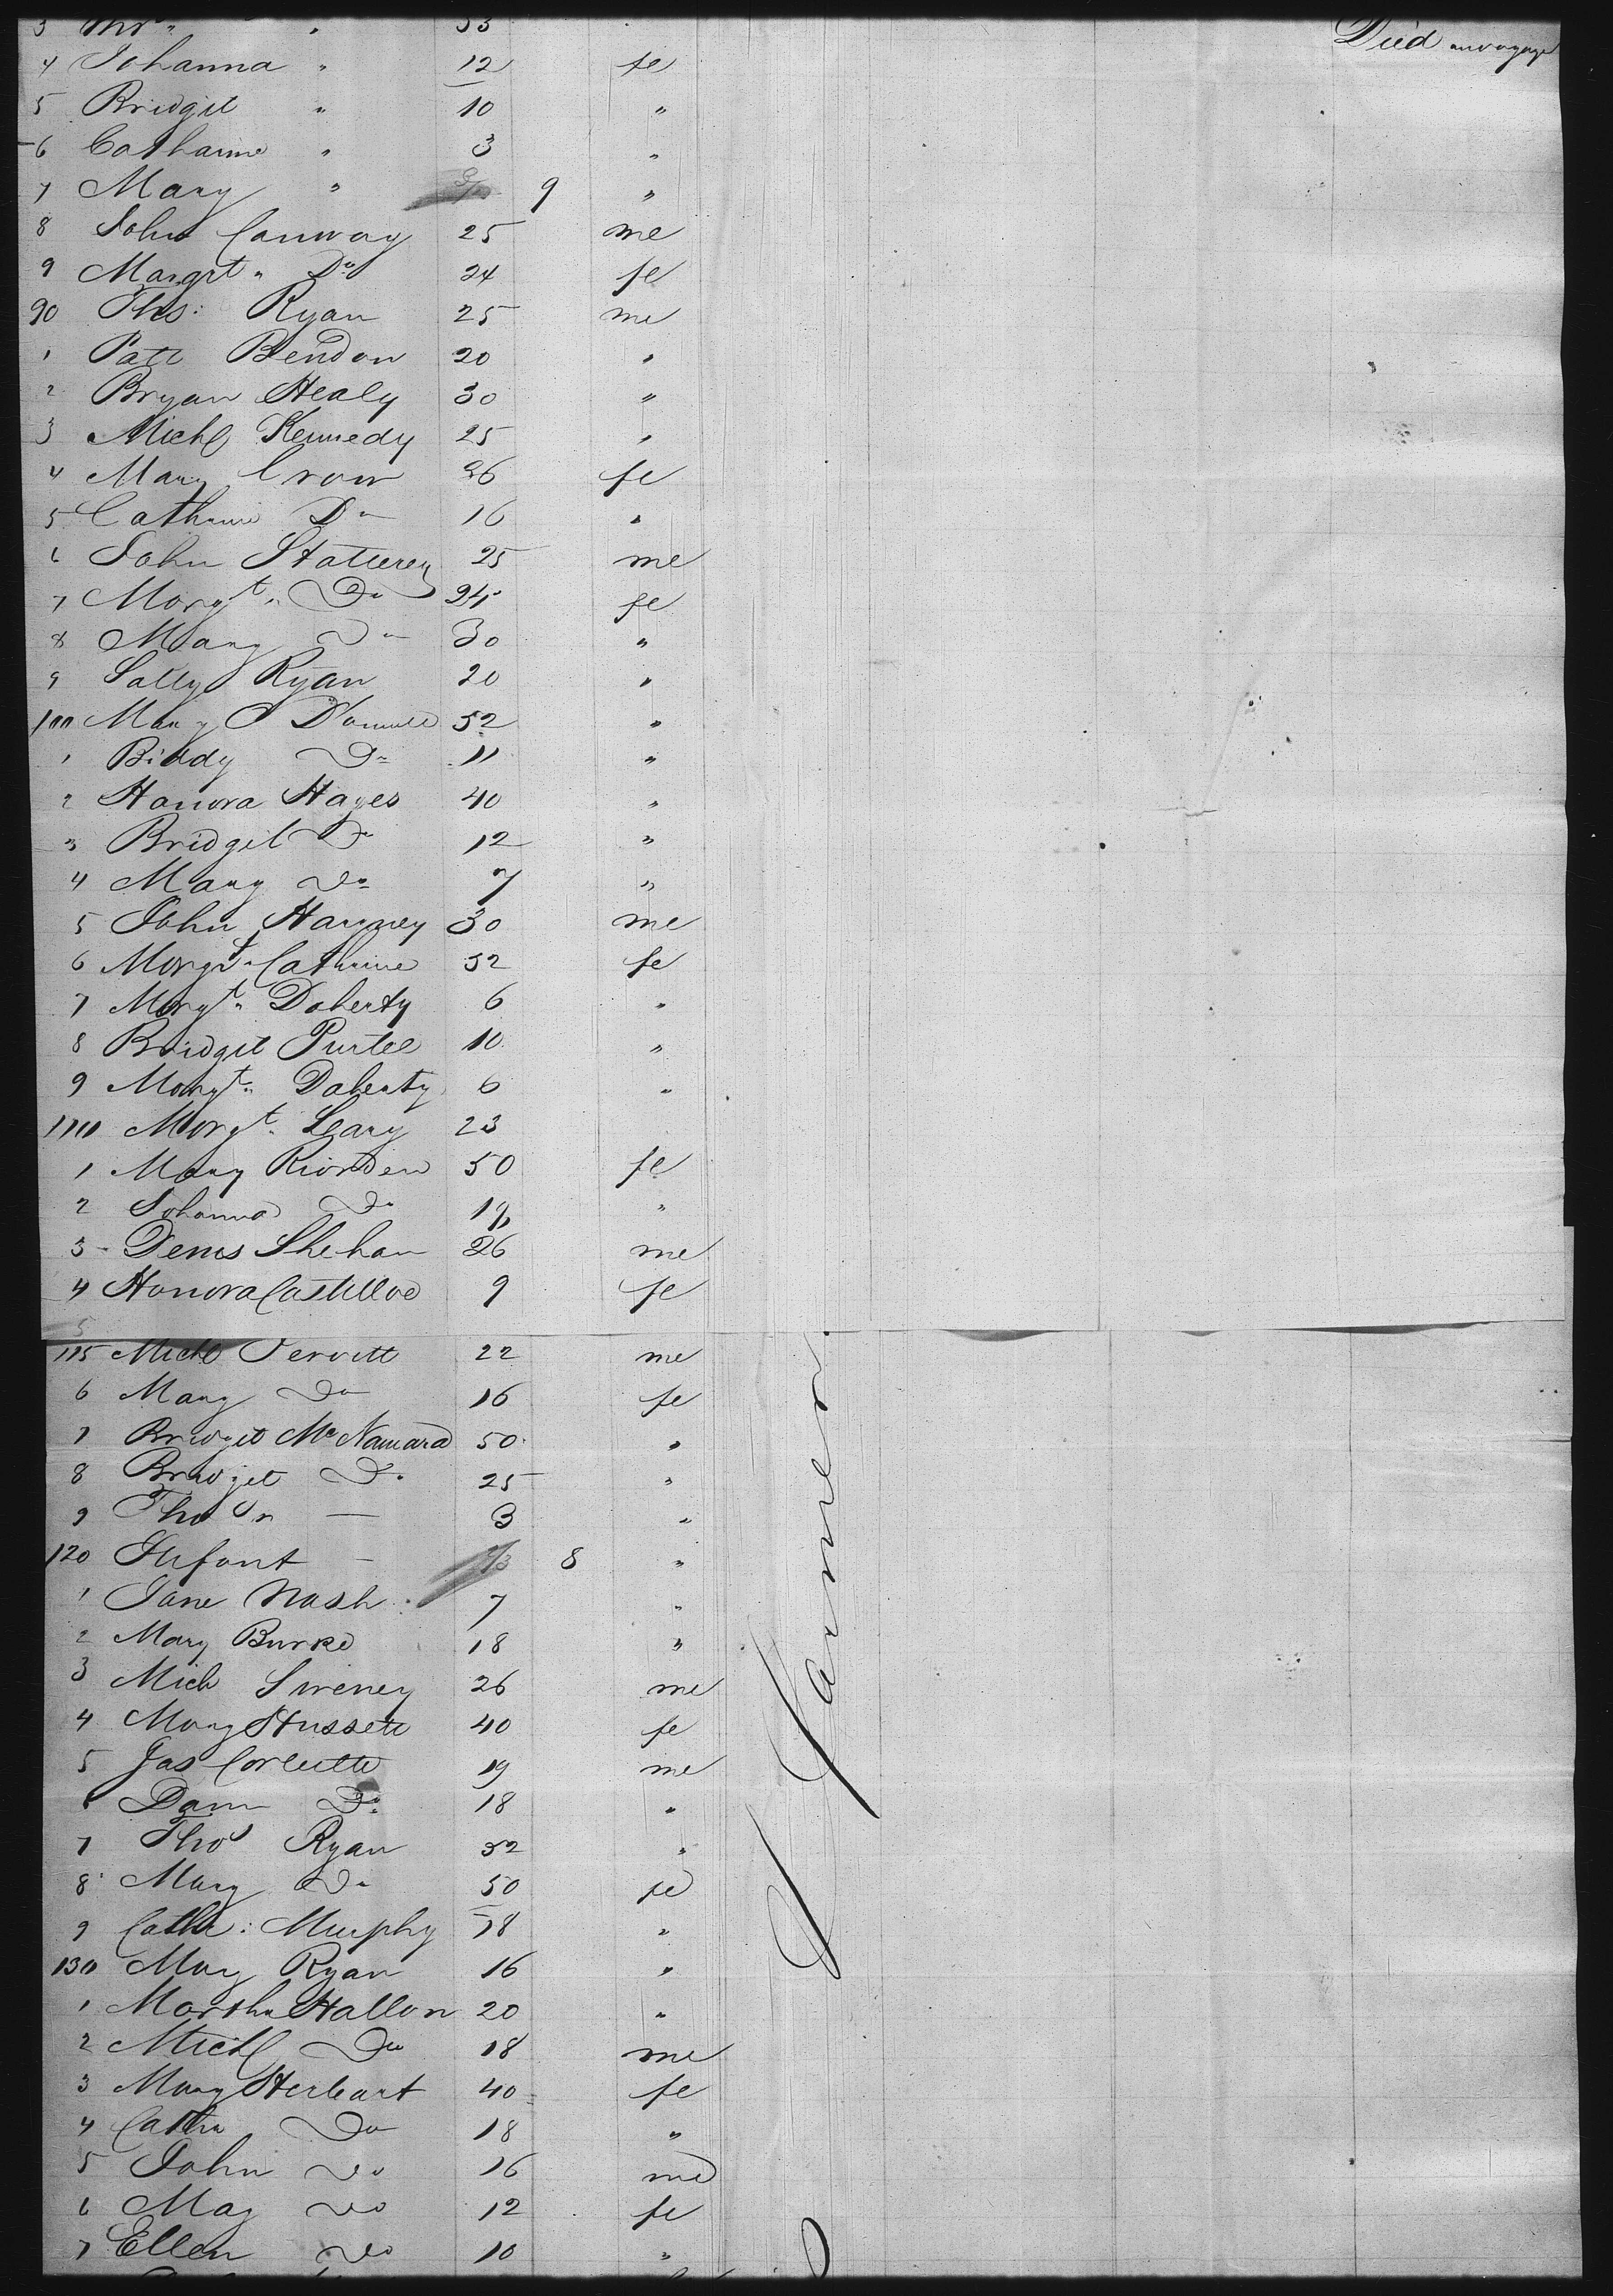 3 Mrs " " 33 Died on voyage
4 Johanna " 12 fe
5 Bridget " 10 "
6 Catharine " 3 "
7 Mary " 9 "
8 John Conway 25 me
9 Margrt " Do 24 fe
90 Thos: Ryan 25 me
1 Patt Bendon 20 "
2 Bryan Healy 30 "
3 Michl Kennedy 25 "
4 Mary Crow 26 fe
5 Catharine Do 16 "
6 John Statterey 25 me
7 Margt " Do 24 fe
8 Mary Do 30 "
9 Sally Ryan 20 "
100 Mary O D'onnell 52 "
1 Biddy Do 11 "
2 Hanora Hayes 40 "
3 Bridget Do 12 "
4 Mary Do 7 "
5 John Harney 30 me
6 Margt " Cathrine 32 fe
7 Margt " Doherty 6 "
8 Bridget Purtel 10 "
9 Margt " Doherty 6 "
110 Margt " Leary 23
1 Mary Riorden 50 fe
2 Johanna Do 19 "
3 - Denis Shehan 26 me
4 Honora Costilloe 9 fe
5
115 Michl 22 me
6 Mary Do 16 fe
7 Bridget Mc Namara 50 "
8 Bridget Do 25 "
9 Thos " — 3 "
120 Infant — 8 "
1 Jane Nash 7 "
2 Mary Burke 18 "
3 Mich Sweney 26 me
4 Mary Hussett 40 fe
5 Jas Corbette 19 me
6 Dann Do 18 "
7 Thos Ryan 32 "
8 Mary Do 50 fe
9 Cathe: Murphy 18 "
130 May Ryan 16 "
1 Martha Hallon 20 "
2 Michl Do 18 me
3 Mary Herbart 40 fe
4 Cathe Do 18 "
5 John Do 16 me
6 May Do 12 fe
7 Ellen Do 10 "
Farmer